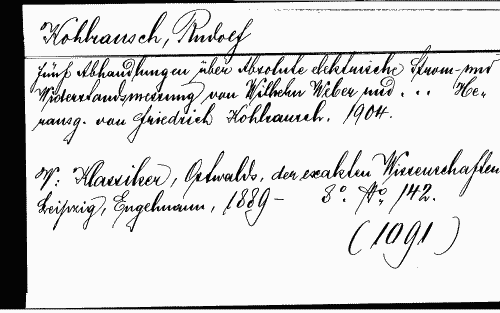 Kohlrausch, Rudolf
Fünf Abhandlungen über Absolute elektrische Strom- und
Widerstandsmessung von Wilhelm Weber und ... He-
rausg. von Friedrich Kohlrausch. 1904.
V: Klassiker, Ostwalds, der exakten Wissenschaften
Leipzig, Engelmann, 1889- 8°. No. 142.
(1091)